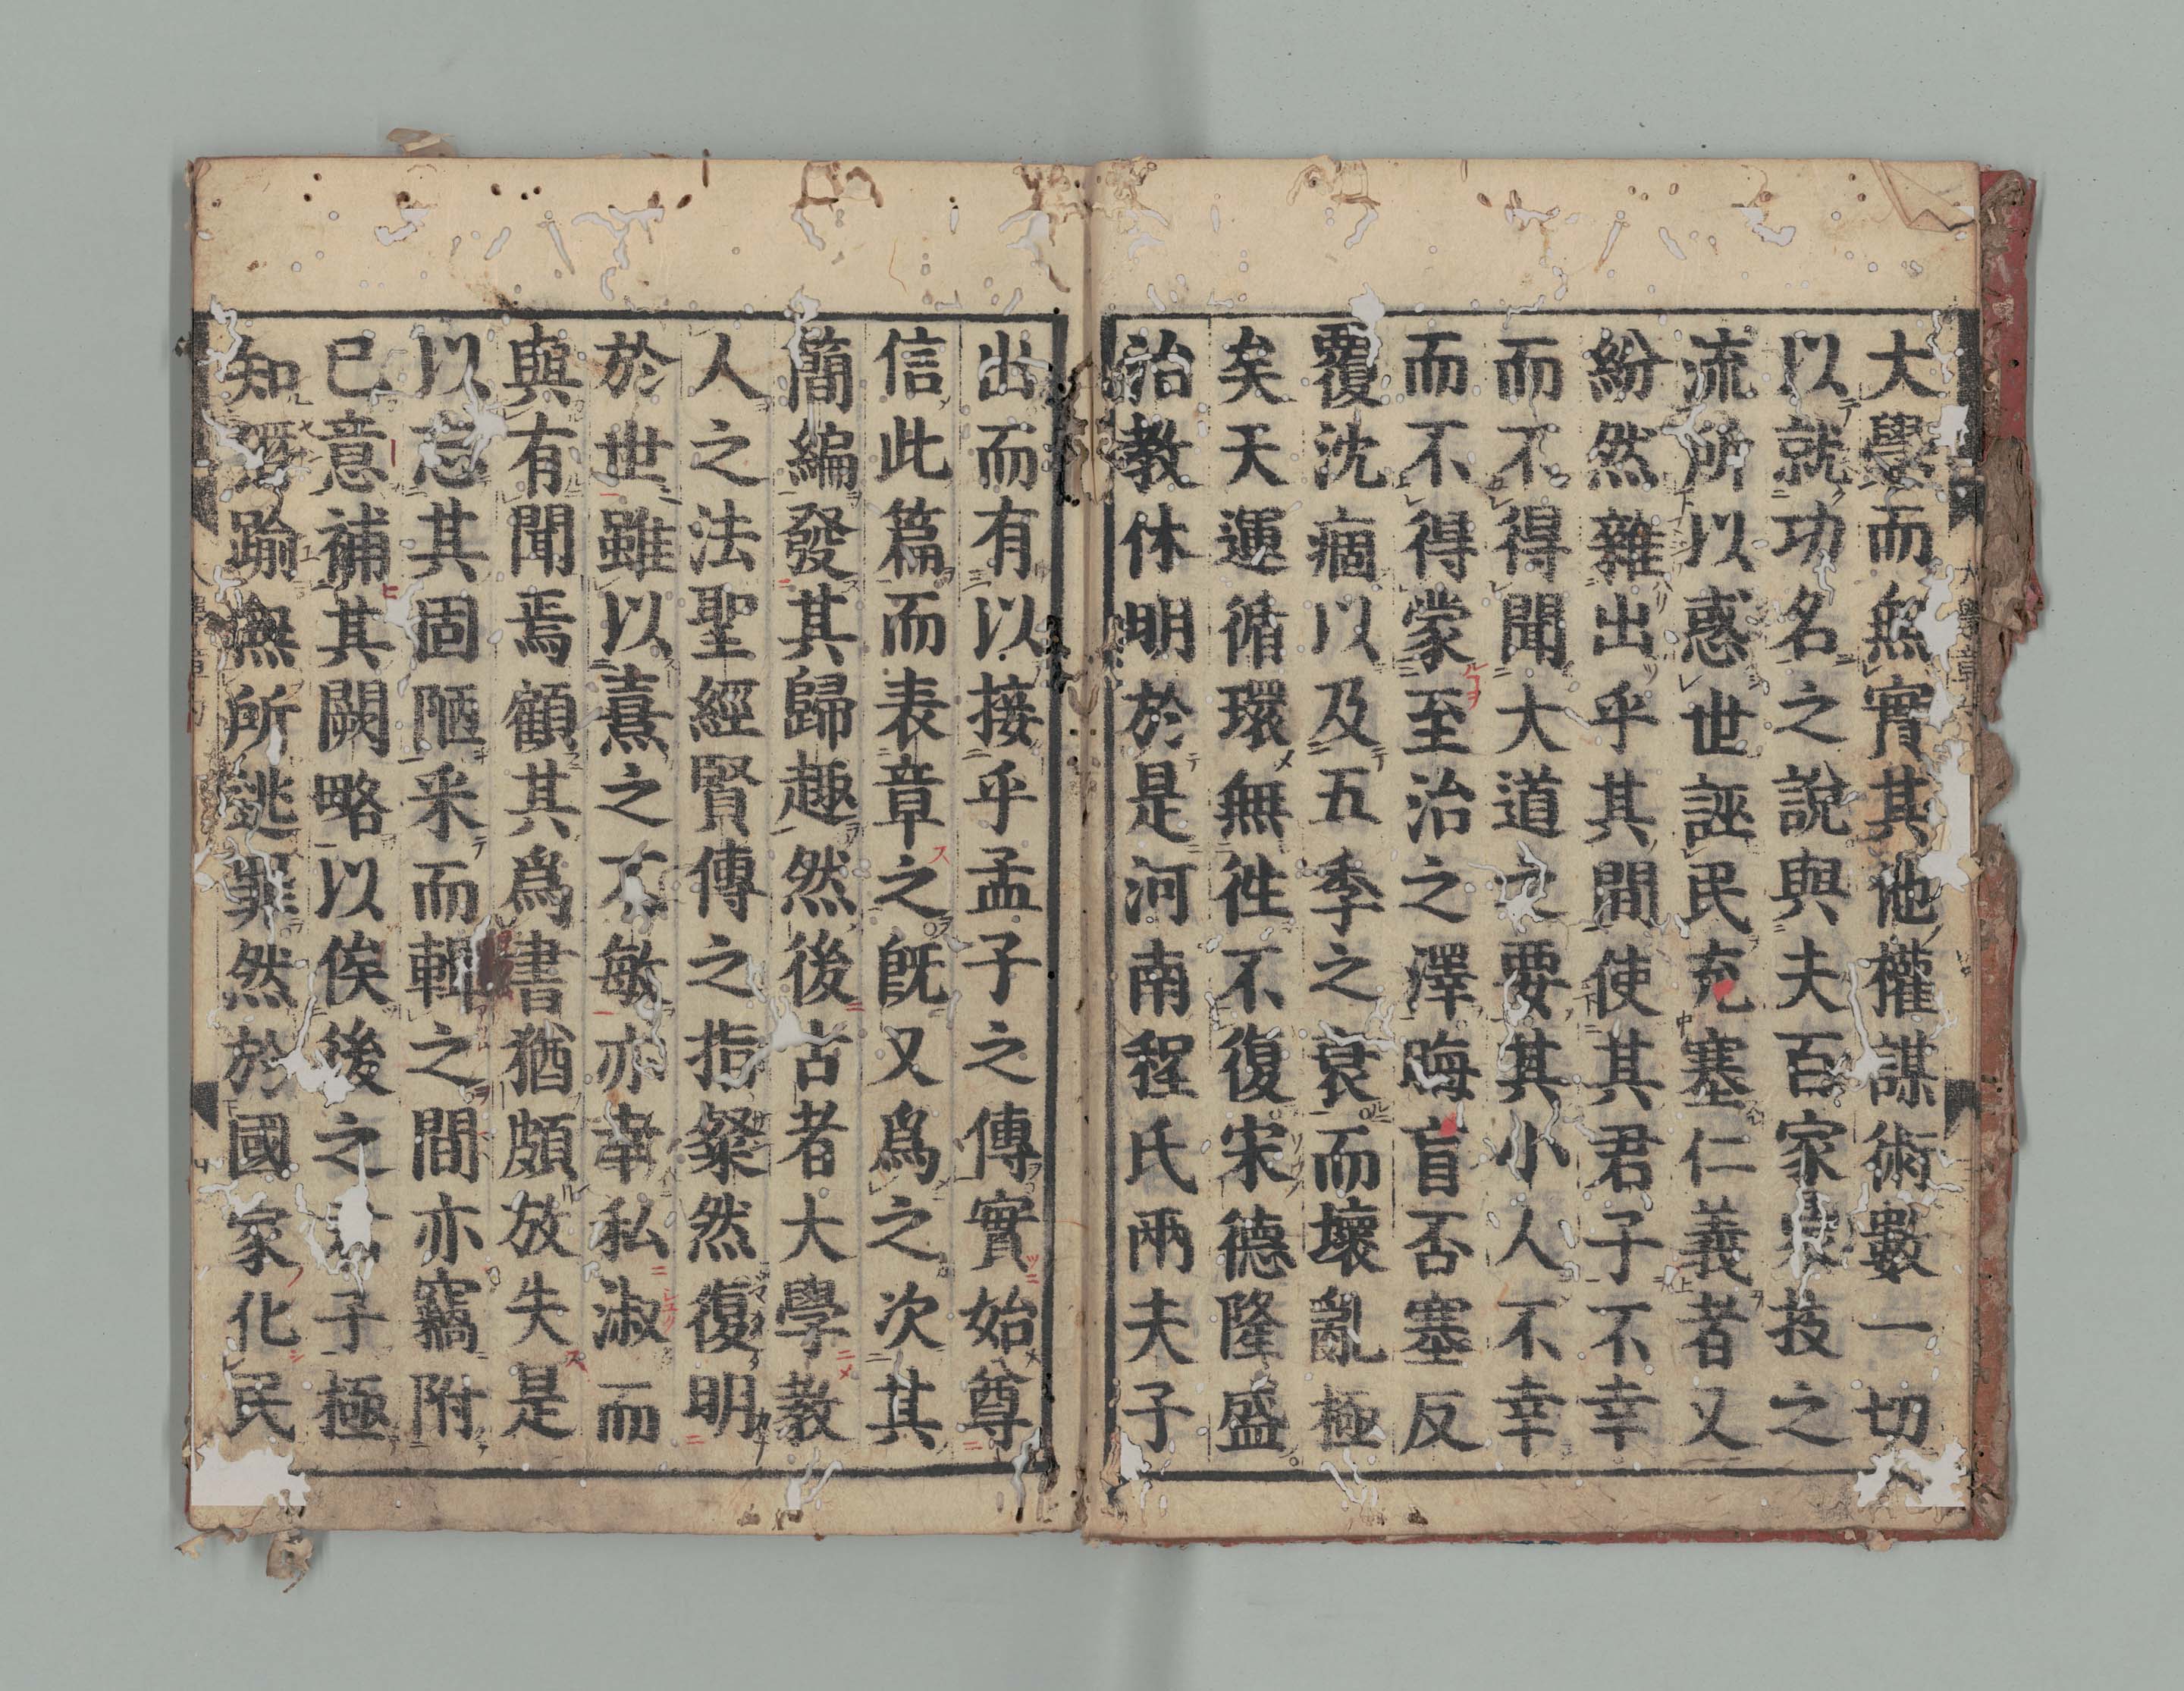 大學而無實其他權謀術數一切
以就功名之說與夫百家衆技之
流所以惑世誣民充塞仁義者又
紛然雜出乎其間使其君子不幸
而不得聞大道之要其小人不幸
而不得蒙至治之澤晦盲否塞反
覆沈痼以及五季之衰而壞亂極
矣天運循環無徃不復宋德隆盛
治教休明於是河南程氏兩夫子
出而有以接乎孟子之傳實始尊
信此篇而表章之既又爲之次其
簡編發其歸趣然後古者大學教
人之法聖經賢傳之指粲然復明
於世雖以熹之不敏亦幸私淑而
與有聞焉顧其爲書猶頗放失是
以忘其固陋釆而輯之間亦竊附
已意補其闕略以俟後之君子極
知僭踰無所逃罪然於國家化民